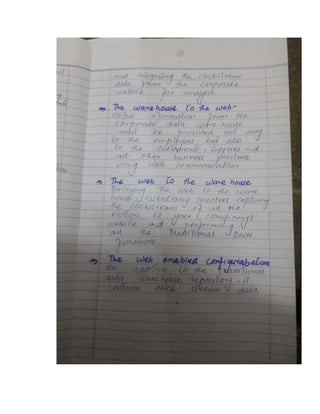 and integrating the clickstream
data from the corporate
website for analysis
→ The warehouse to the web-
useful information from the
corporate data warehouse
must be provided not only
to the employees but also
to the customers, suppliers and
all other business partners
using web communication
→ The web to the warehouse
Bringing the web to the ware
house essentially involves capturing
the clickstream of all the
visitors to your company's
website and performing
all the traditional DWH
functions.
→ The web enabled configurations
In addition to the traditional
data warehouse repository, it
contains click stream data